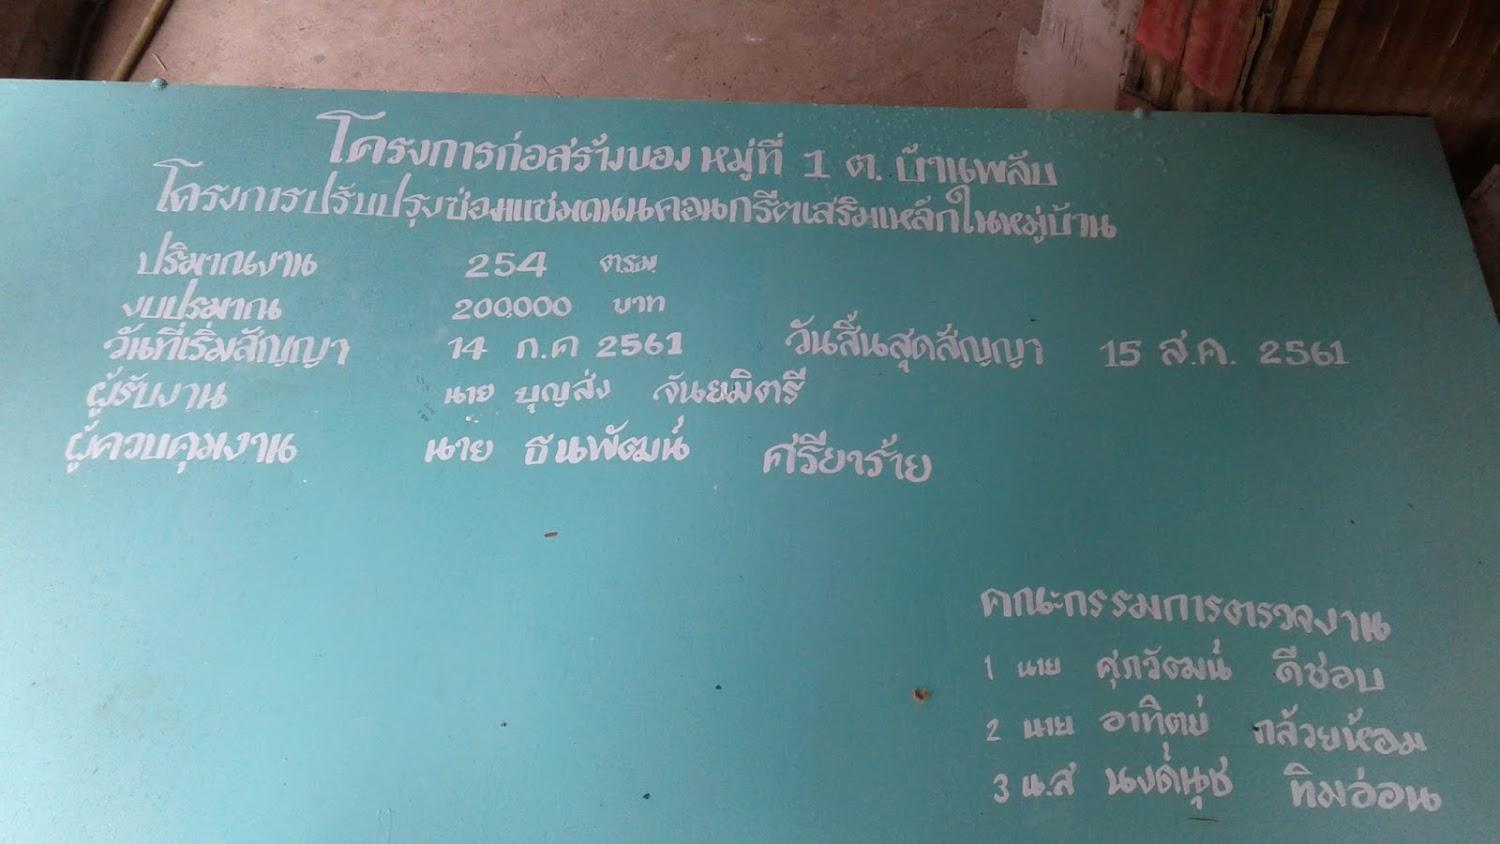 โครงการก่อสร้างของ หมู่ที่ 1 ต. บ้านพลับ
โครงการปรับปรุงซ่อมแซมถนนคอนกรีตเสริมเหล็กในหมู่บ้าน
ปริมาณงาน 254 ตรม.
งบประมาณ 200,000 บาท
วันที่เริ่มสัญญา 14 ก.ค 2561 วันสิ้นสุดสัญญา 15 ส.ค. 2561
ผู้รับงาน นาย บุญส่ง จันยมิตรี
ผู้ควบคุมงาน นาย ธนพัฒน์ ศรียาร้าย
คณะกรรมการตรวจงาน
1 นาย ศุภวัฒน์ ดีชอบ
2 นาย อาทิตย์ กล้วยห้อม
3 น.ส นงค์นุช ทิมอ่อน